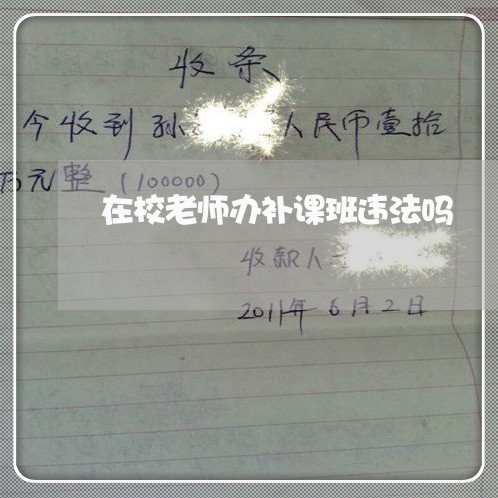 收条
今收到孙人民币壹拾
万元整(100000)
在校老师办补课班违法吗
收款人
2011年6月2日